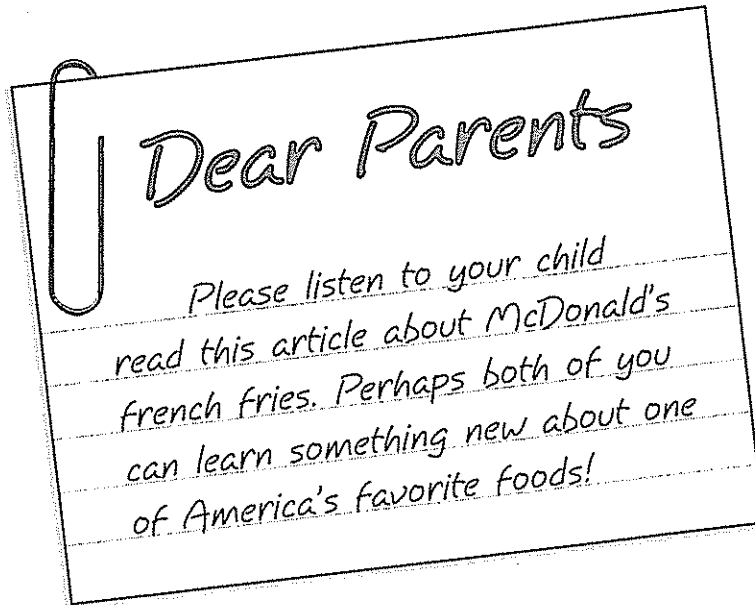 Dear Parents
Please listen to your child
read this article about McDonald's
french fries. Perhaps both of you
can learn something new about one
of America's favorite foods!